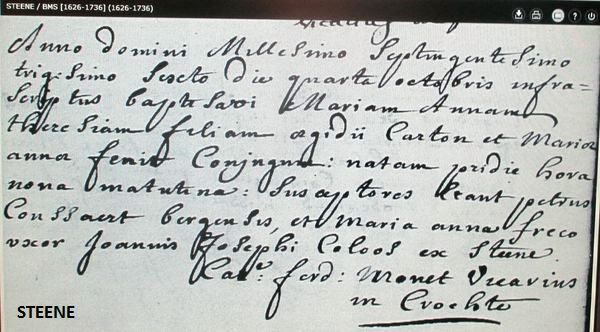 STEENE / BMS [1626-1736] (1626-1736)
Anno domini Millesimo Septingentesimo
trigesimo Sexto die quarta octobris infra=
scriptus baptisavi Mariam Annam
theresiam filiam ægidii Carton et Mariæ
annæ fenin Conjugum: natam pridie hora
nona matutina: Susceptores erant petrus
Coussaert bergensis, et Maria anna freco
uxor Joannis Josephi Coloos ex Steene.
Car: ferd: Monet Vicarius
in Crochte
STEENE